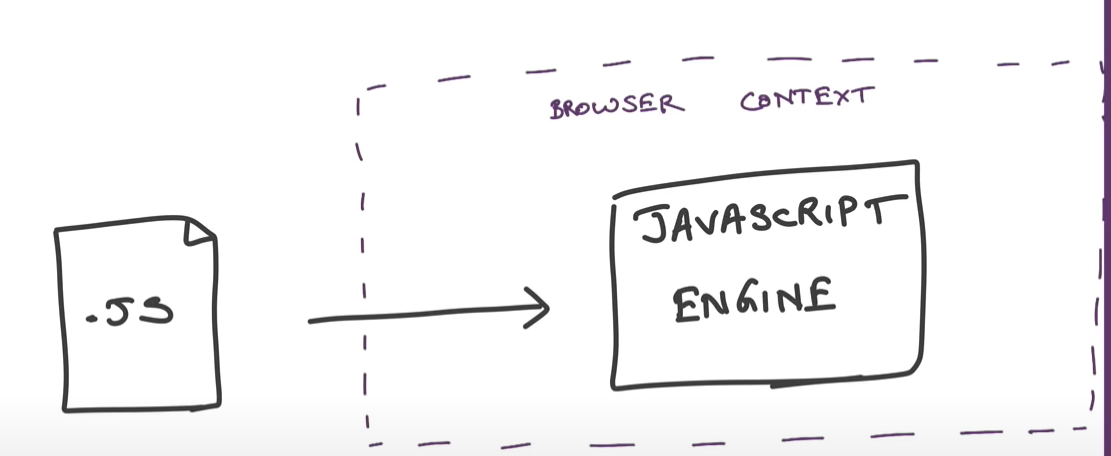 BROWSER CONTEXT
JAVASCRIPT
ENGINE
.JS